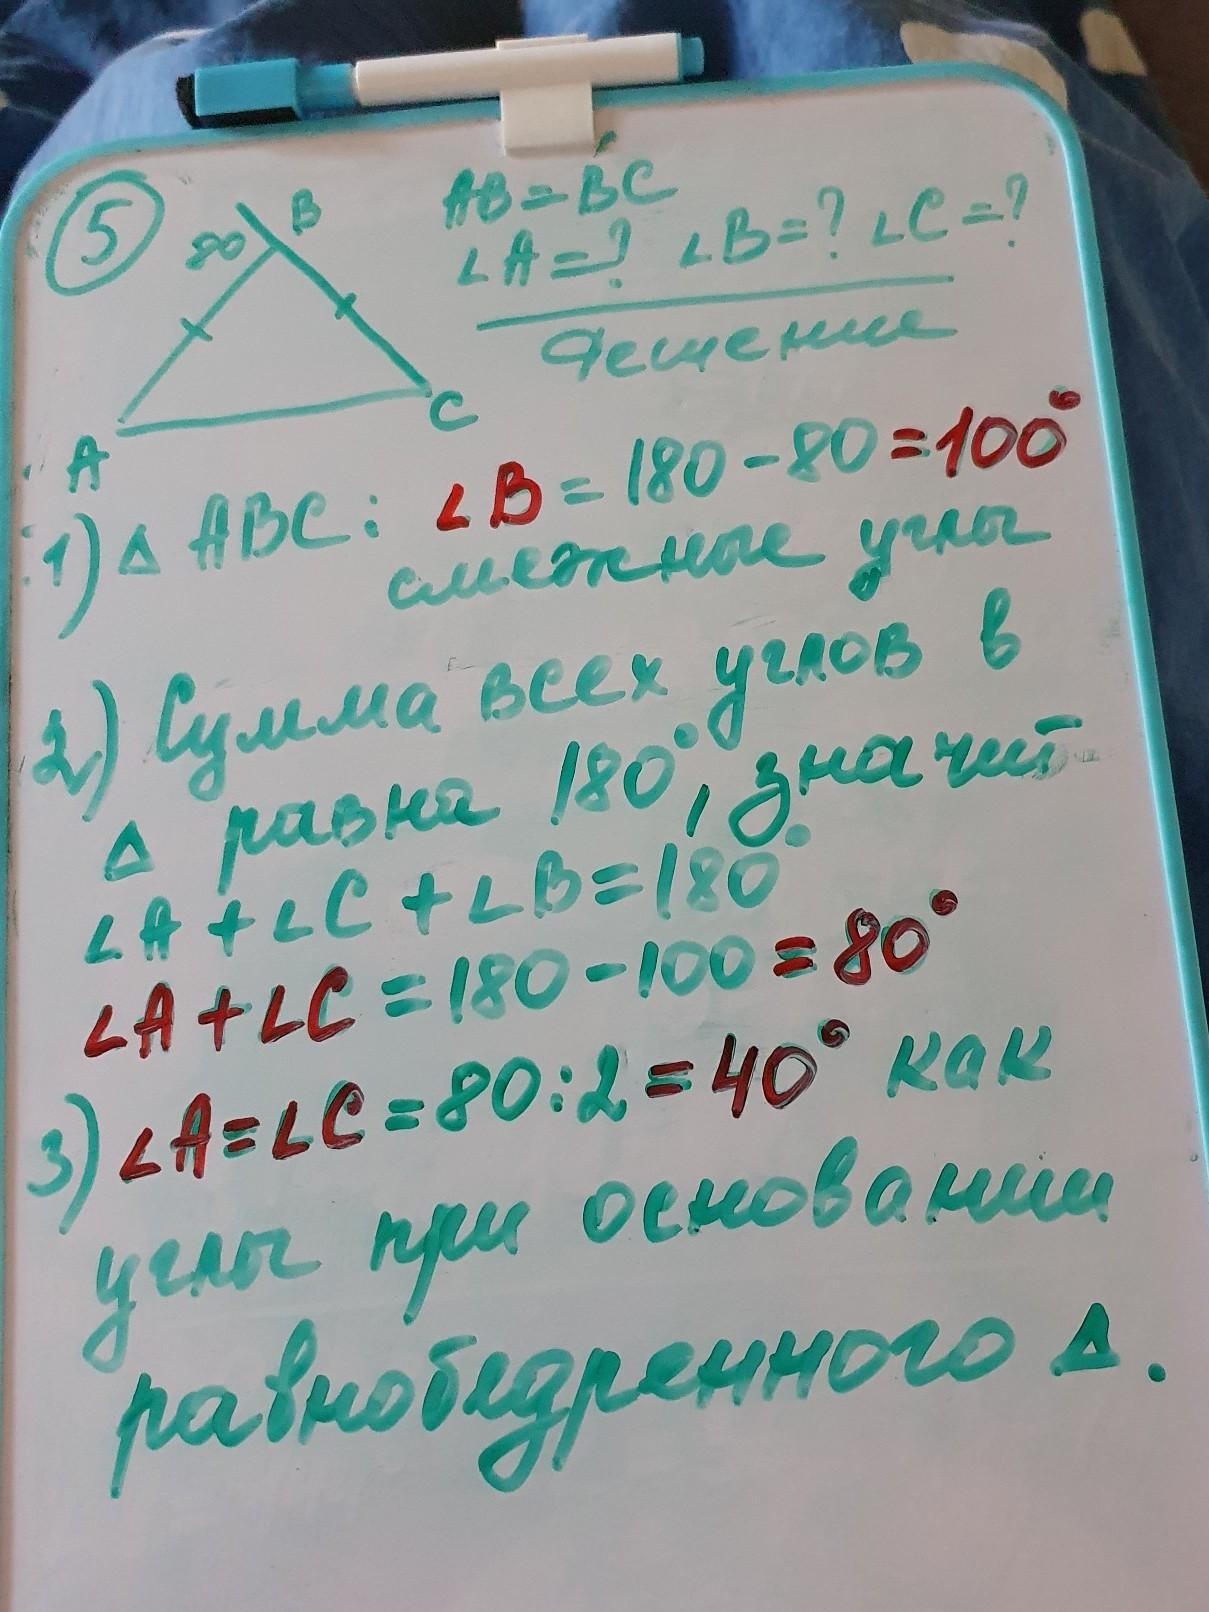 5
B
80
A
C
AB = BC
∠A = ? ∠B = ? ∠C = ?
Решение
1) Δ ABC: ∠B = 180 - 80 = 100°
смежные углы
2) Сумма всех углов в
Δ равна 180°, значит
∠A + ∠C + ∠B = 180°
∠A + ∠C = 180 - 100 = 80°
3) ∠A = ∠C = 80 : 2 = 40° как
углы при основании
равнобедренного Δ.